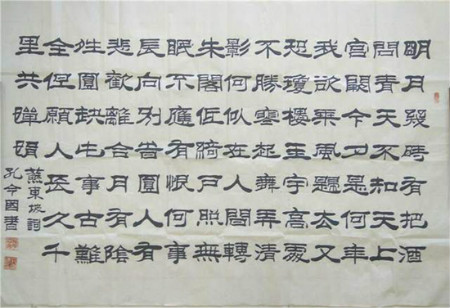 明月幾時有把酒
問青天不知天上
宮闕今夕是何年
我欲乘風歸去又
恐瓊樓玉宇高處
不勝寒起舞弄清
影何似在人間轉
朱閣低綺戶照無
眠不應有恨何事
長向別旹圓人有
悲歡離合月有陰
姓圓缺此事古難
全但願人長久千
里共嬋娟
蘇東坡詞
孔令國書